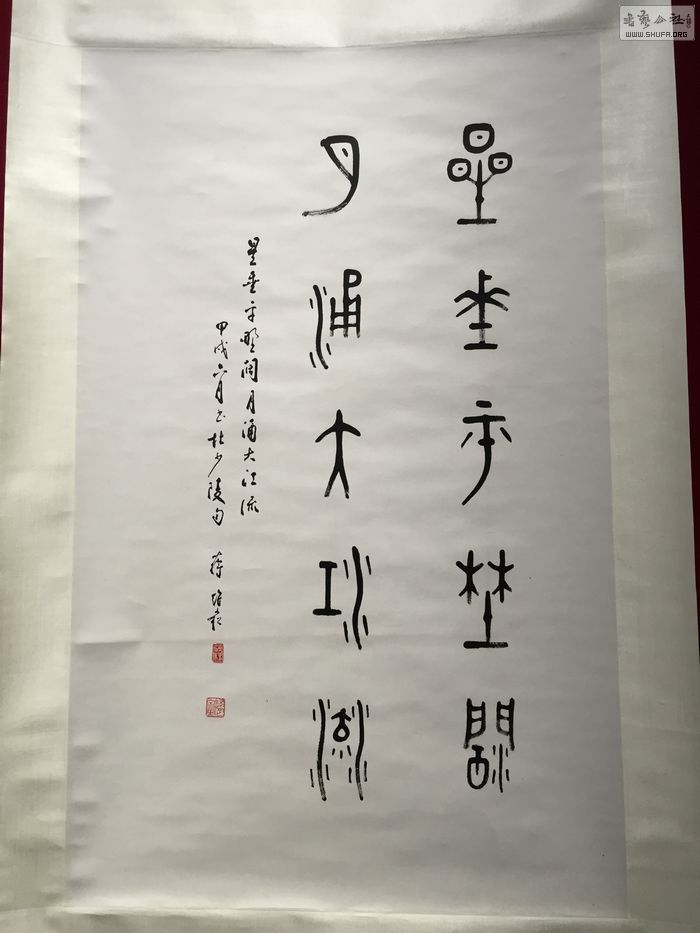 星垂平野闊
月涌大江流
星垂平野闊月涌大江流
甲戌六月書杜少陵句 蔣
WWW.SHUFA.ORG